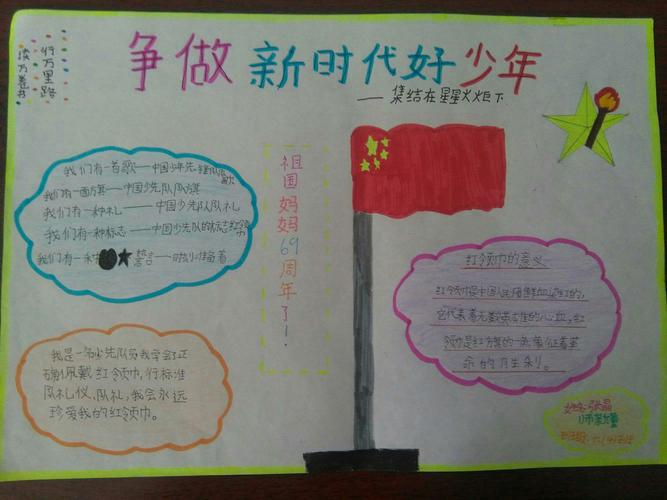 争做新时代好少年
——集结在星星火炬下
读万卷书
行万里路
我们有一首歌——中国少年先锋队队歌
我们有一面旗——中国少先队队旗
我们有一种礼——中国少先队队礼
我们有一种标志——中国少先队的标志红领巾
我们有一种 誓言——时刻准备着
祖国妈妈69周年了!
红领巾的意义
红领巾是中国人民用鲜血染红的,
它代表着无数英雄的心血,红
领巾是红方旗的一角,象征着革
命的胜利。
我是一名少先队员我学会了正
确佩戴红领巾,行标准
队礼仪、队礼,我会永远
珍爱我的红领巾。
姓名:张晶